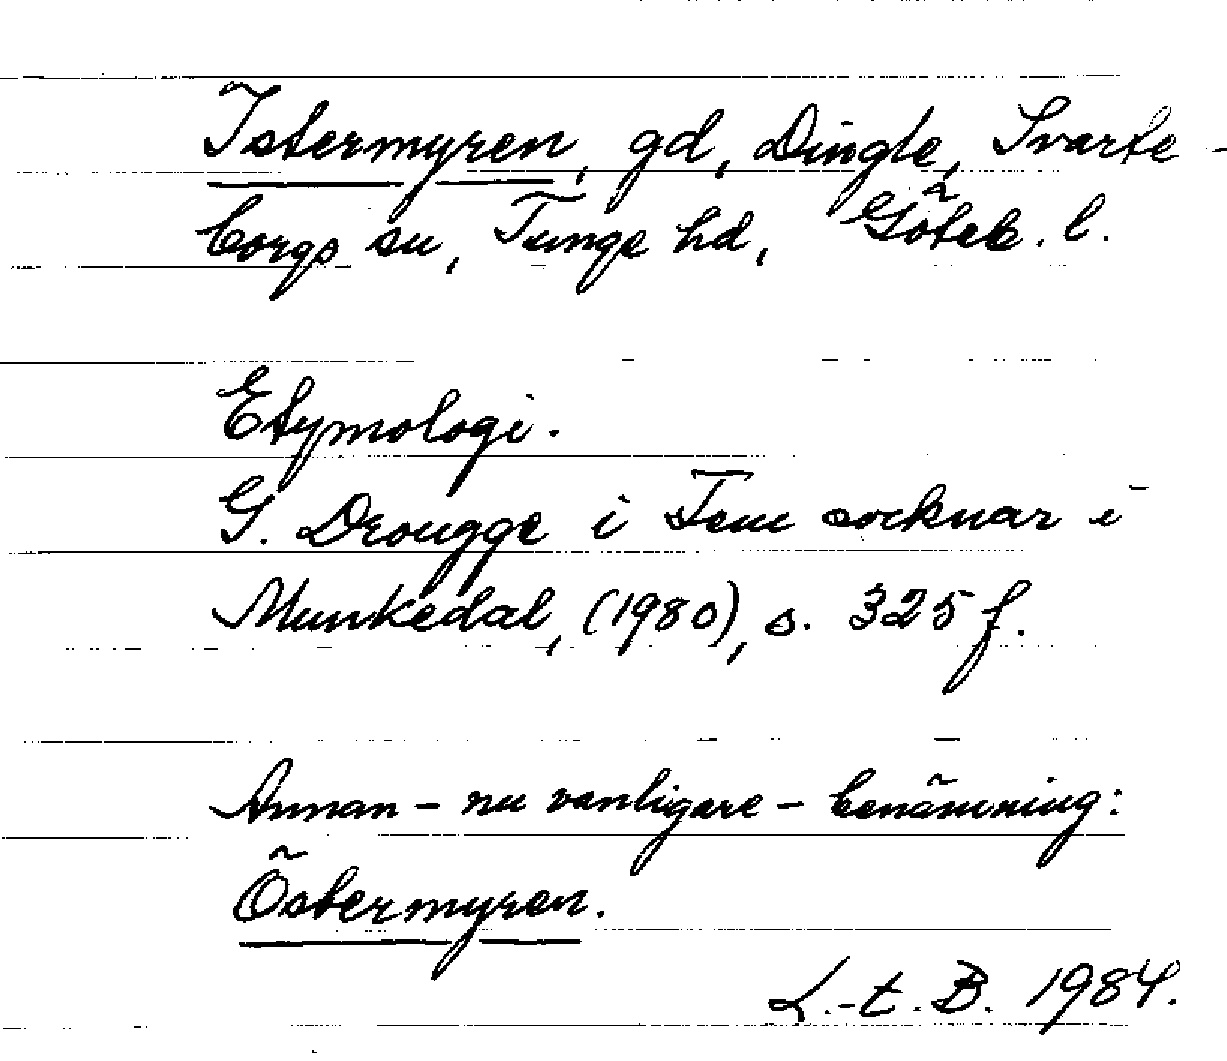 Istermyren, gd, Dingle, Svarte-
borgs sn, Tunge hd, Göteb. l.
Etymologi.
G. Drougge i Fem socknar i
Munkedal, (1980), s. 325 f.
Annan - nu vanligare - benämning:
Östermyren.
L.-t. B. 1984.